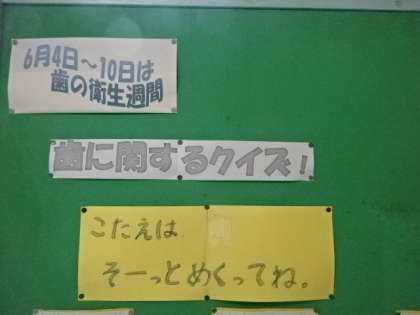 6月4日～10日は
歯の衛生週間
歯に関するクイズ!
こたえは
そーっとめくってね。